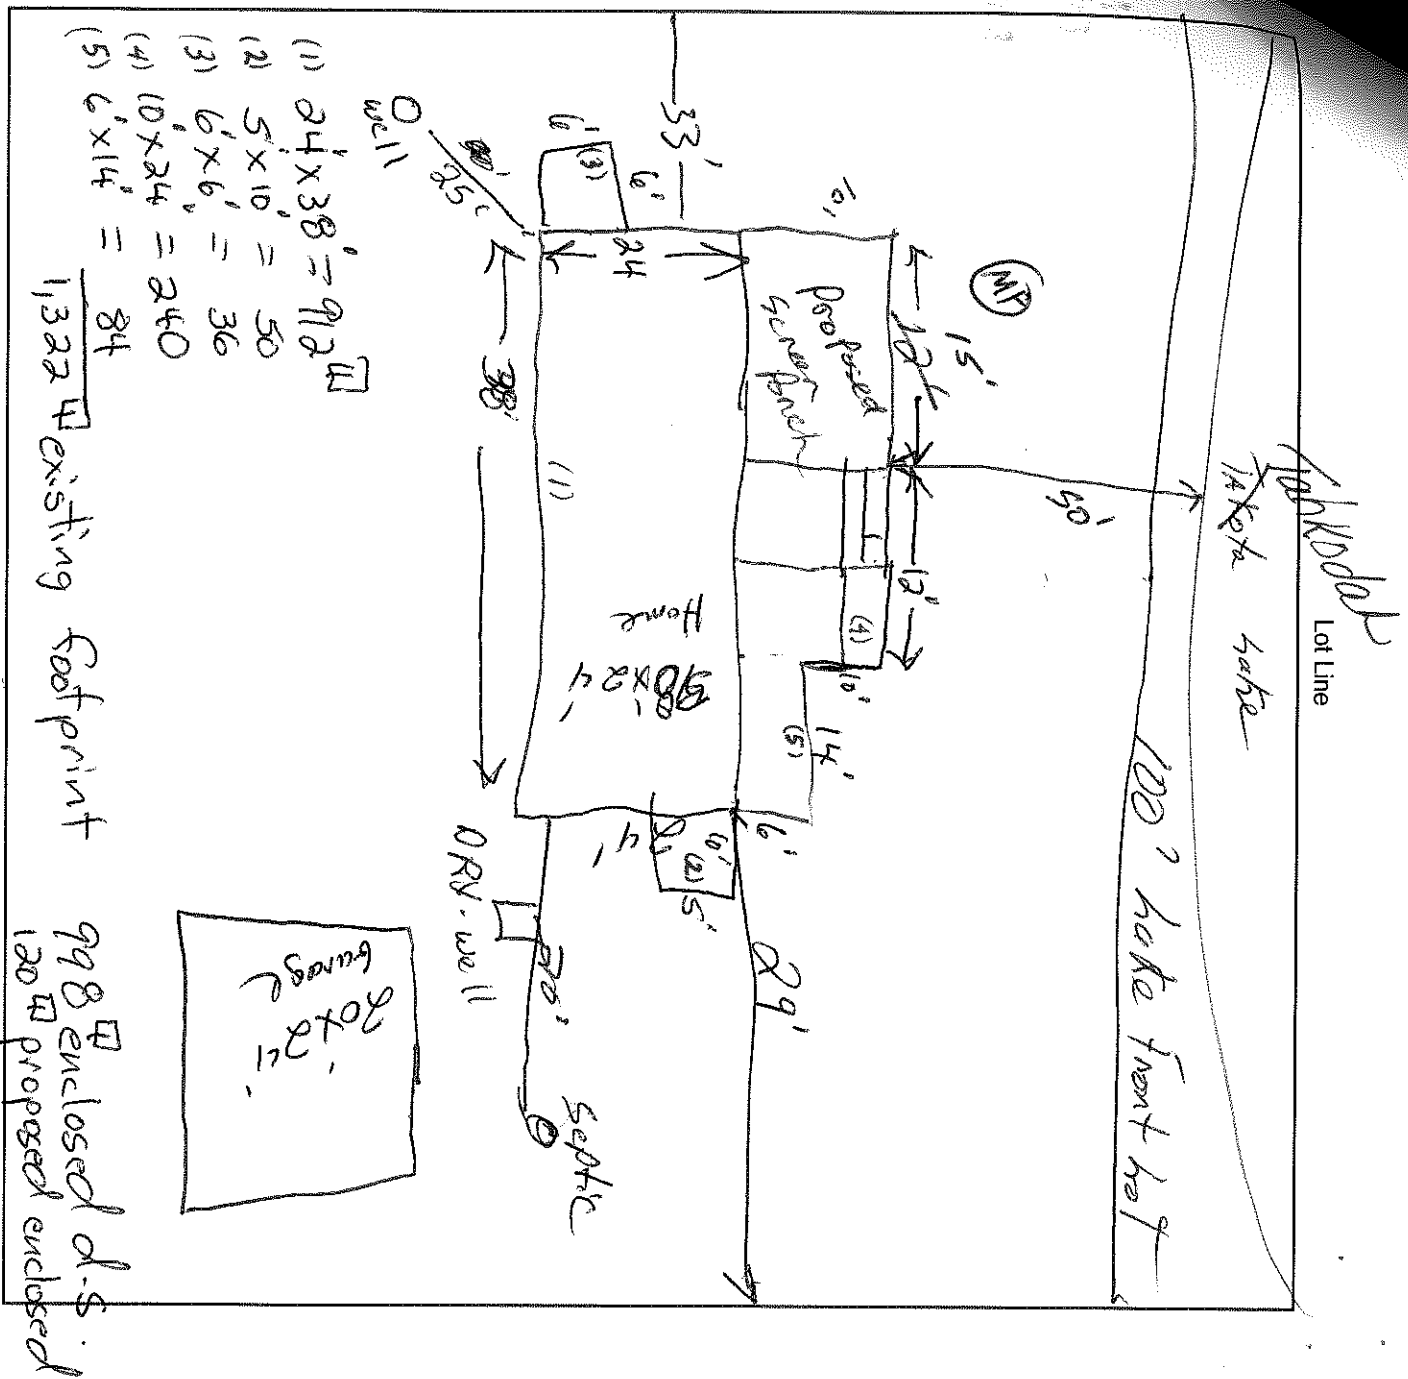 Lot Line
Tahkodah
Lake
100' Lake Front Lot
50'
MP
15'
12'
12'
10'
proposed
screen
porch
33'
(4)
10'
14'
(5)
6'
29'
6'
(3)
6'
24
Home
38x24'
(1)
38'
10'
(2)
5'
4'
well
25'
DRY-well
70'
Septic
20x24'
Garage
(1) 24'x38' = 912
(2) 5'x10' = 50
(3) 6'x6' = 36
(4) 10'x24' = 240
(5) 6'x14' = 84
1,322 existing footprint
998 enclosed d.s.
120 proposed enclosed